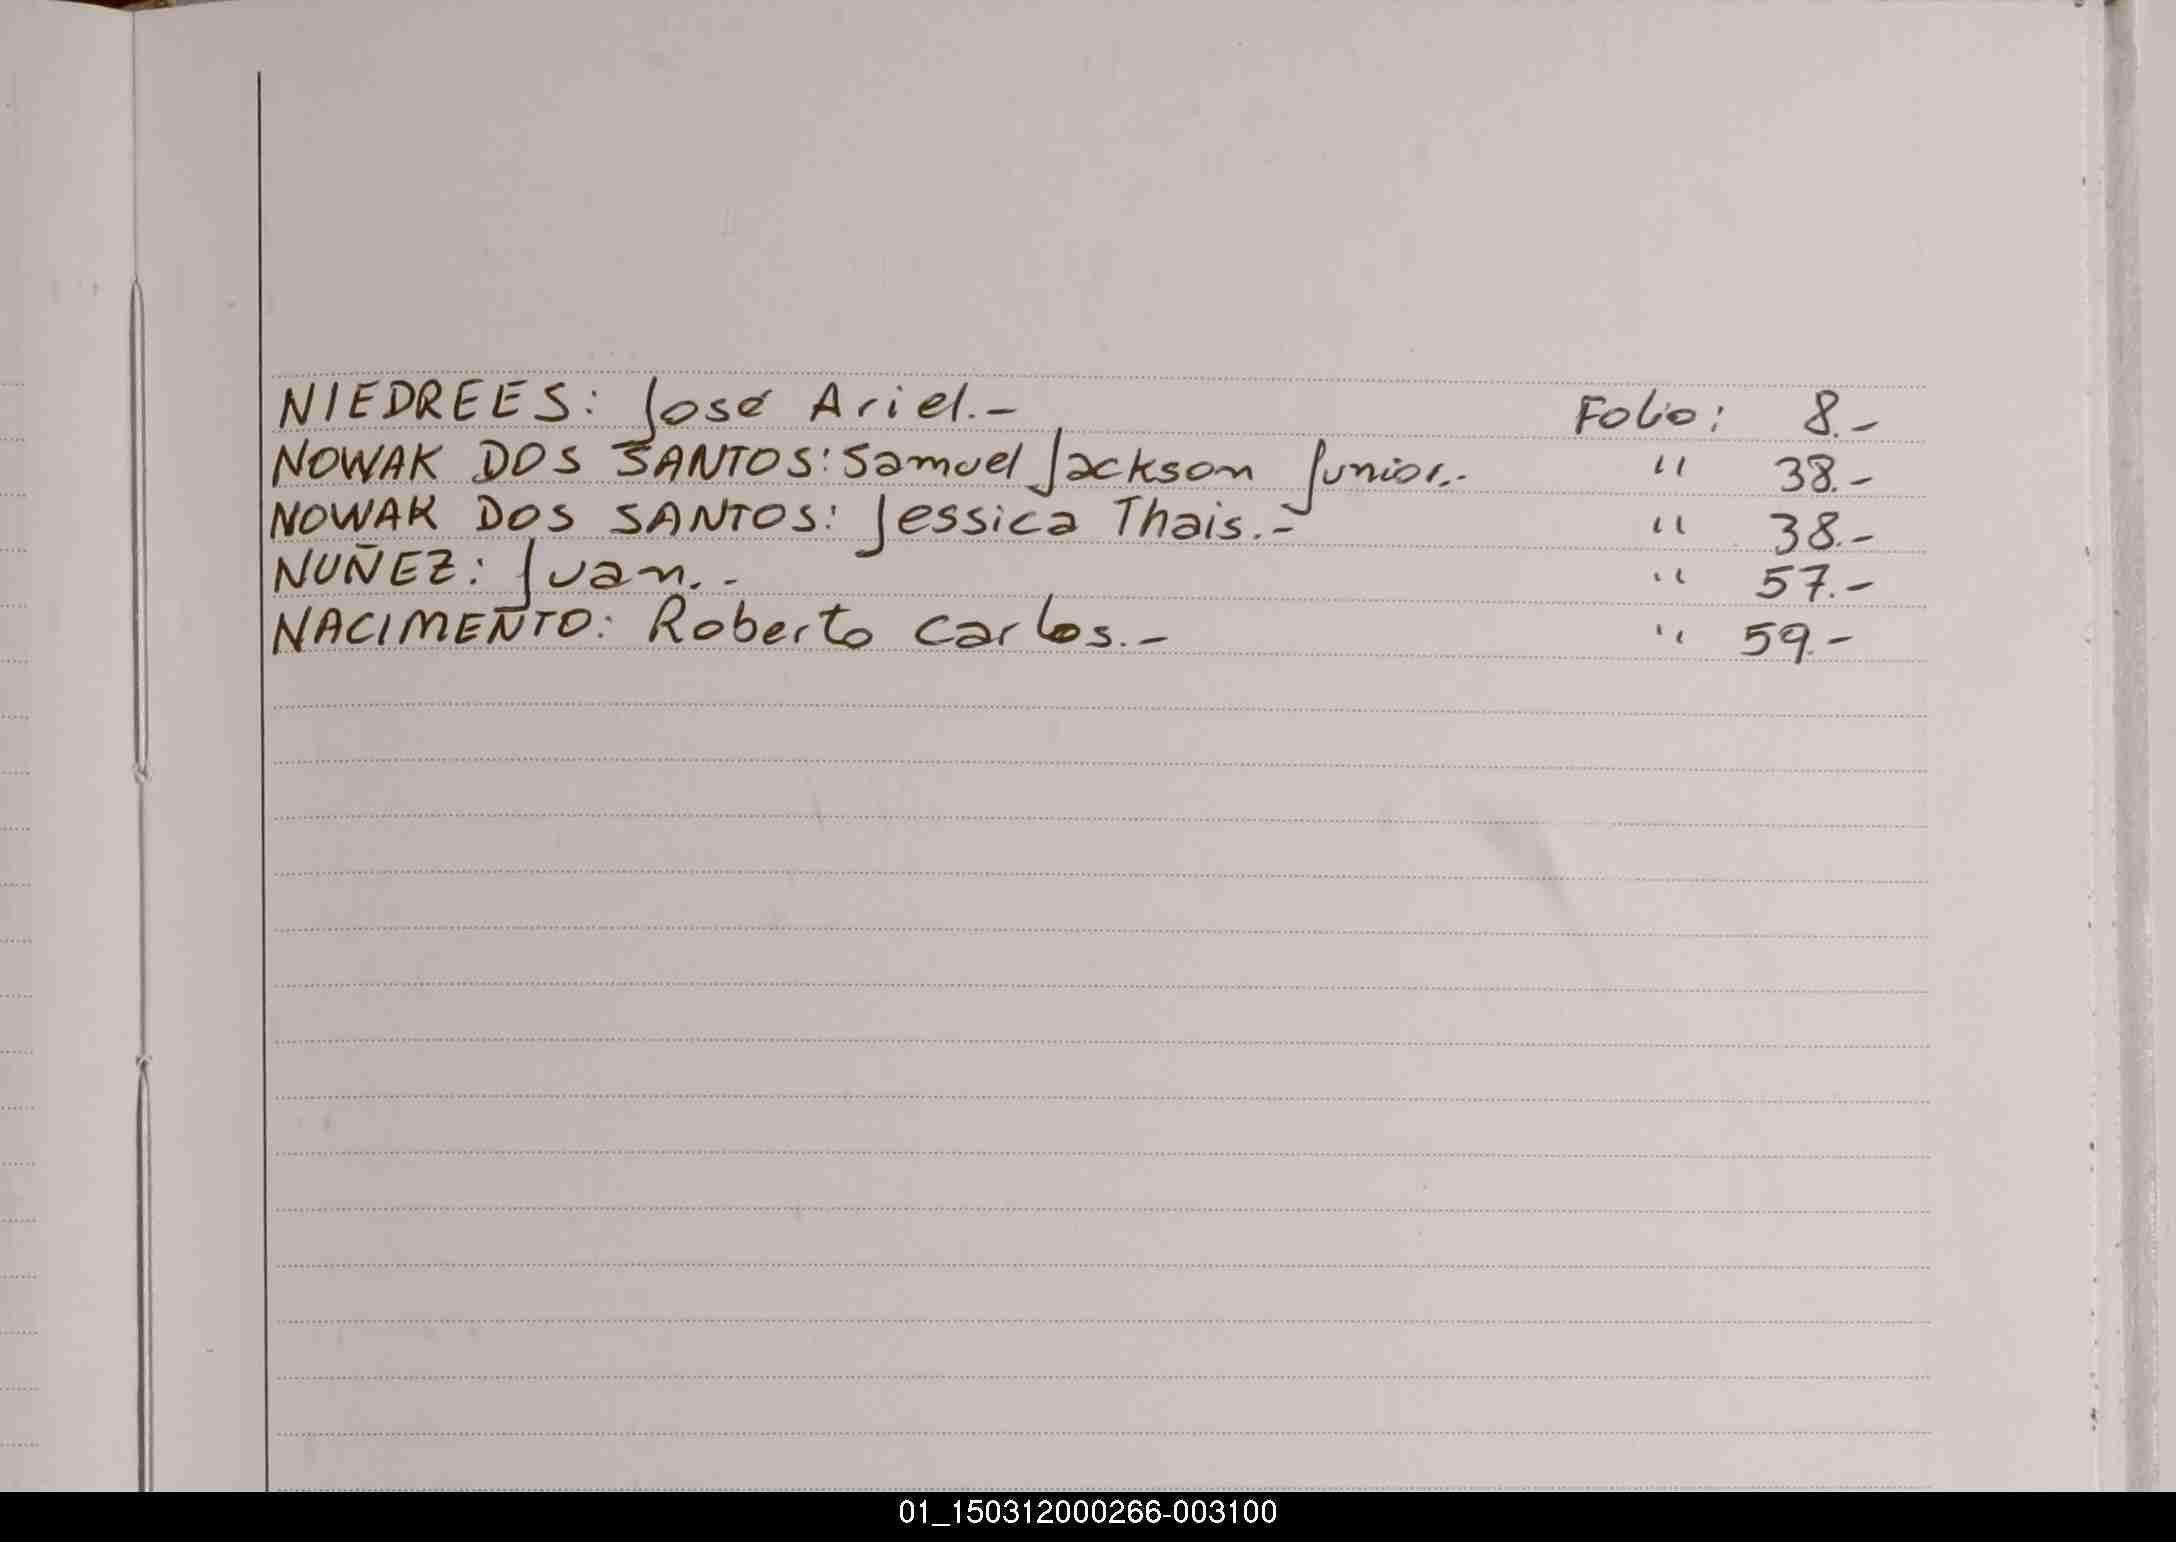 NIEDREES: José Ariel.- Folio: 8.-
NOWAK DOS SANTOS: Samuel Jackson Junior.- " 38.-
NOWAK DOS SANTOS: Jessica Thais.- " 38.-
NUÑEZ: Juan.- " 57.-
NACIMENTO: Roberto Carlos.- " 59.-
01_150312000266-003100